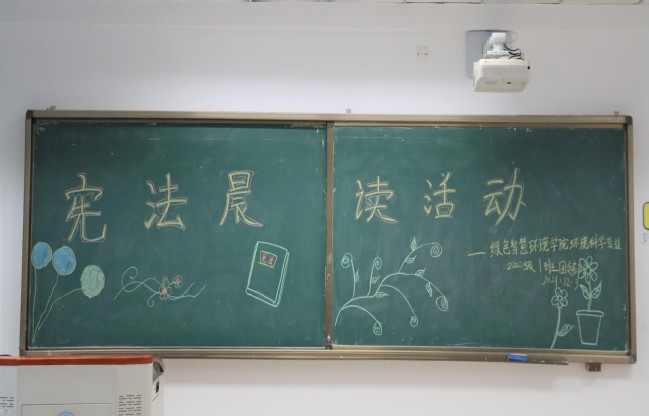 宪法晨读活动
—绿色智慧环境学院环境科学专业
2020级1班团支
2021.12.